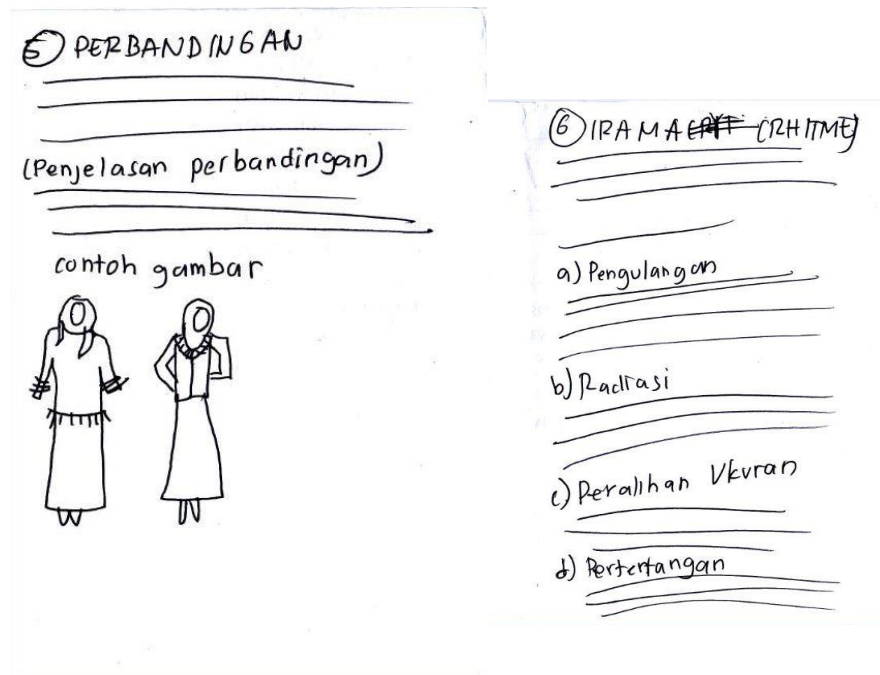 5 PERBANDINGAN
(Penjelasan perbandingan)
contoh gambar
6 IRAMA (RHITME)
a) Pengulangan
b) Radiasi
c) Peralihan Ukuran
d) Pertentangan